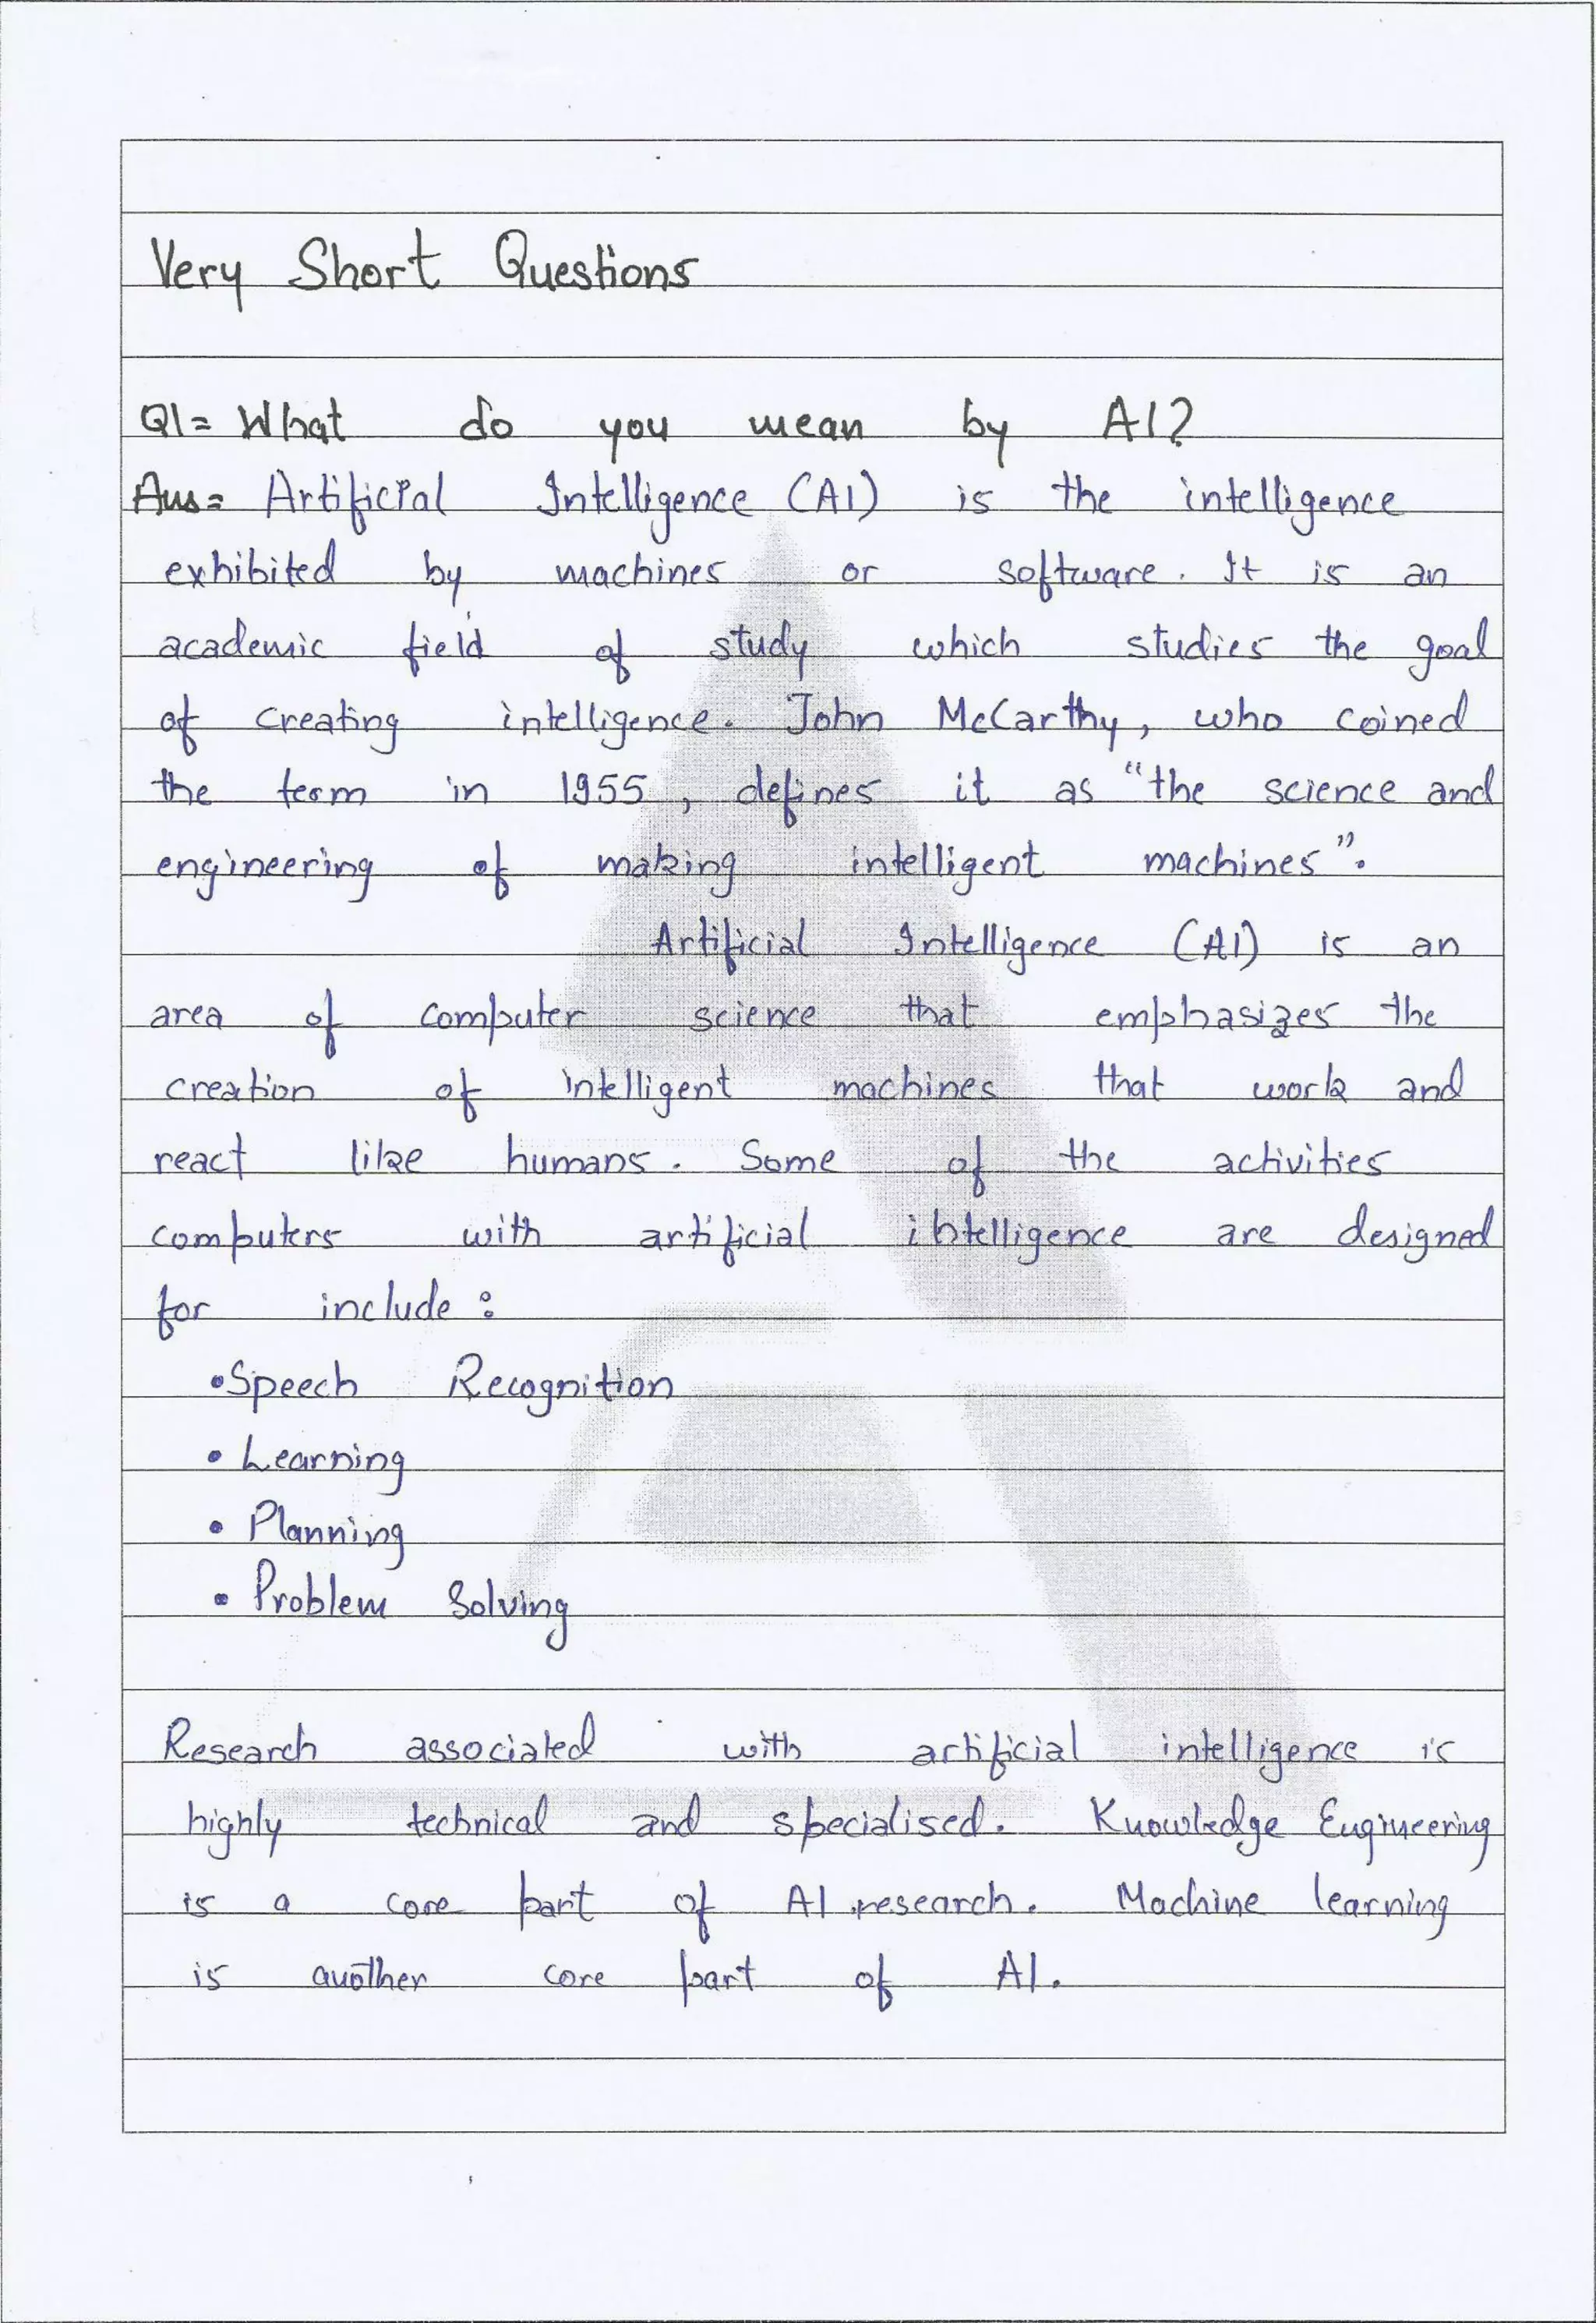 Very Short Questions
Q1= What do you mean by AI?
Ans= Artificial Intelligence (AI) is the intelligence
exhibited by machines or software. It is an
academic field of study which studies the goal
of creating intelligence. John McCarthy, who coined
the term in 1955, defines it as "the science and
engineering of making intelligent machines".
Artificial Intelligence (AI) is an
area of computer science that emphasizes the
creation of intelligent machines that work and
react like humans. Some of the activities
computers with artificial intelligence are designed
for include:
• Speech Recognition
• Learning
• Planning
• Problem Solving
Research associated with artificial intelligence is
highly technical and specialised. Knowledge Engineering
is a core part of AI research. Machine learning
is another core part of AI.